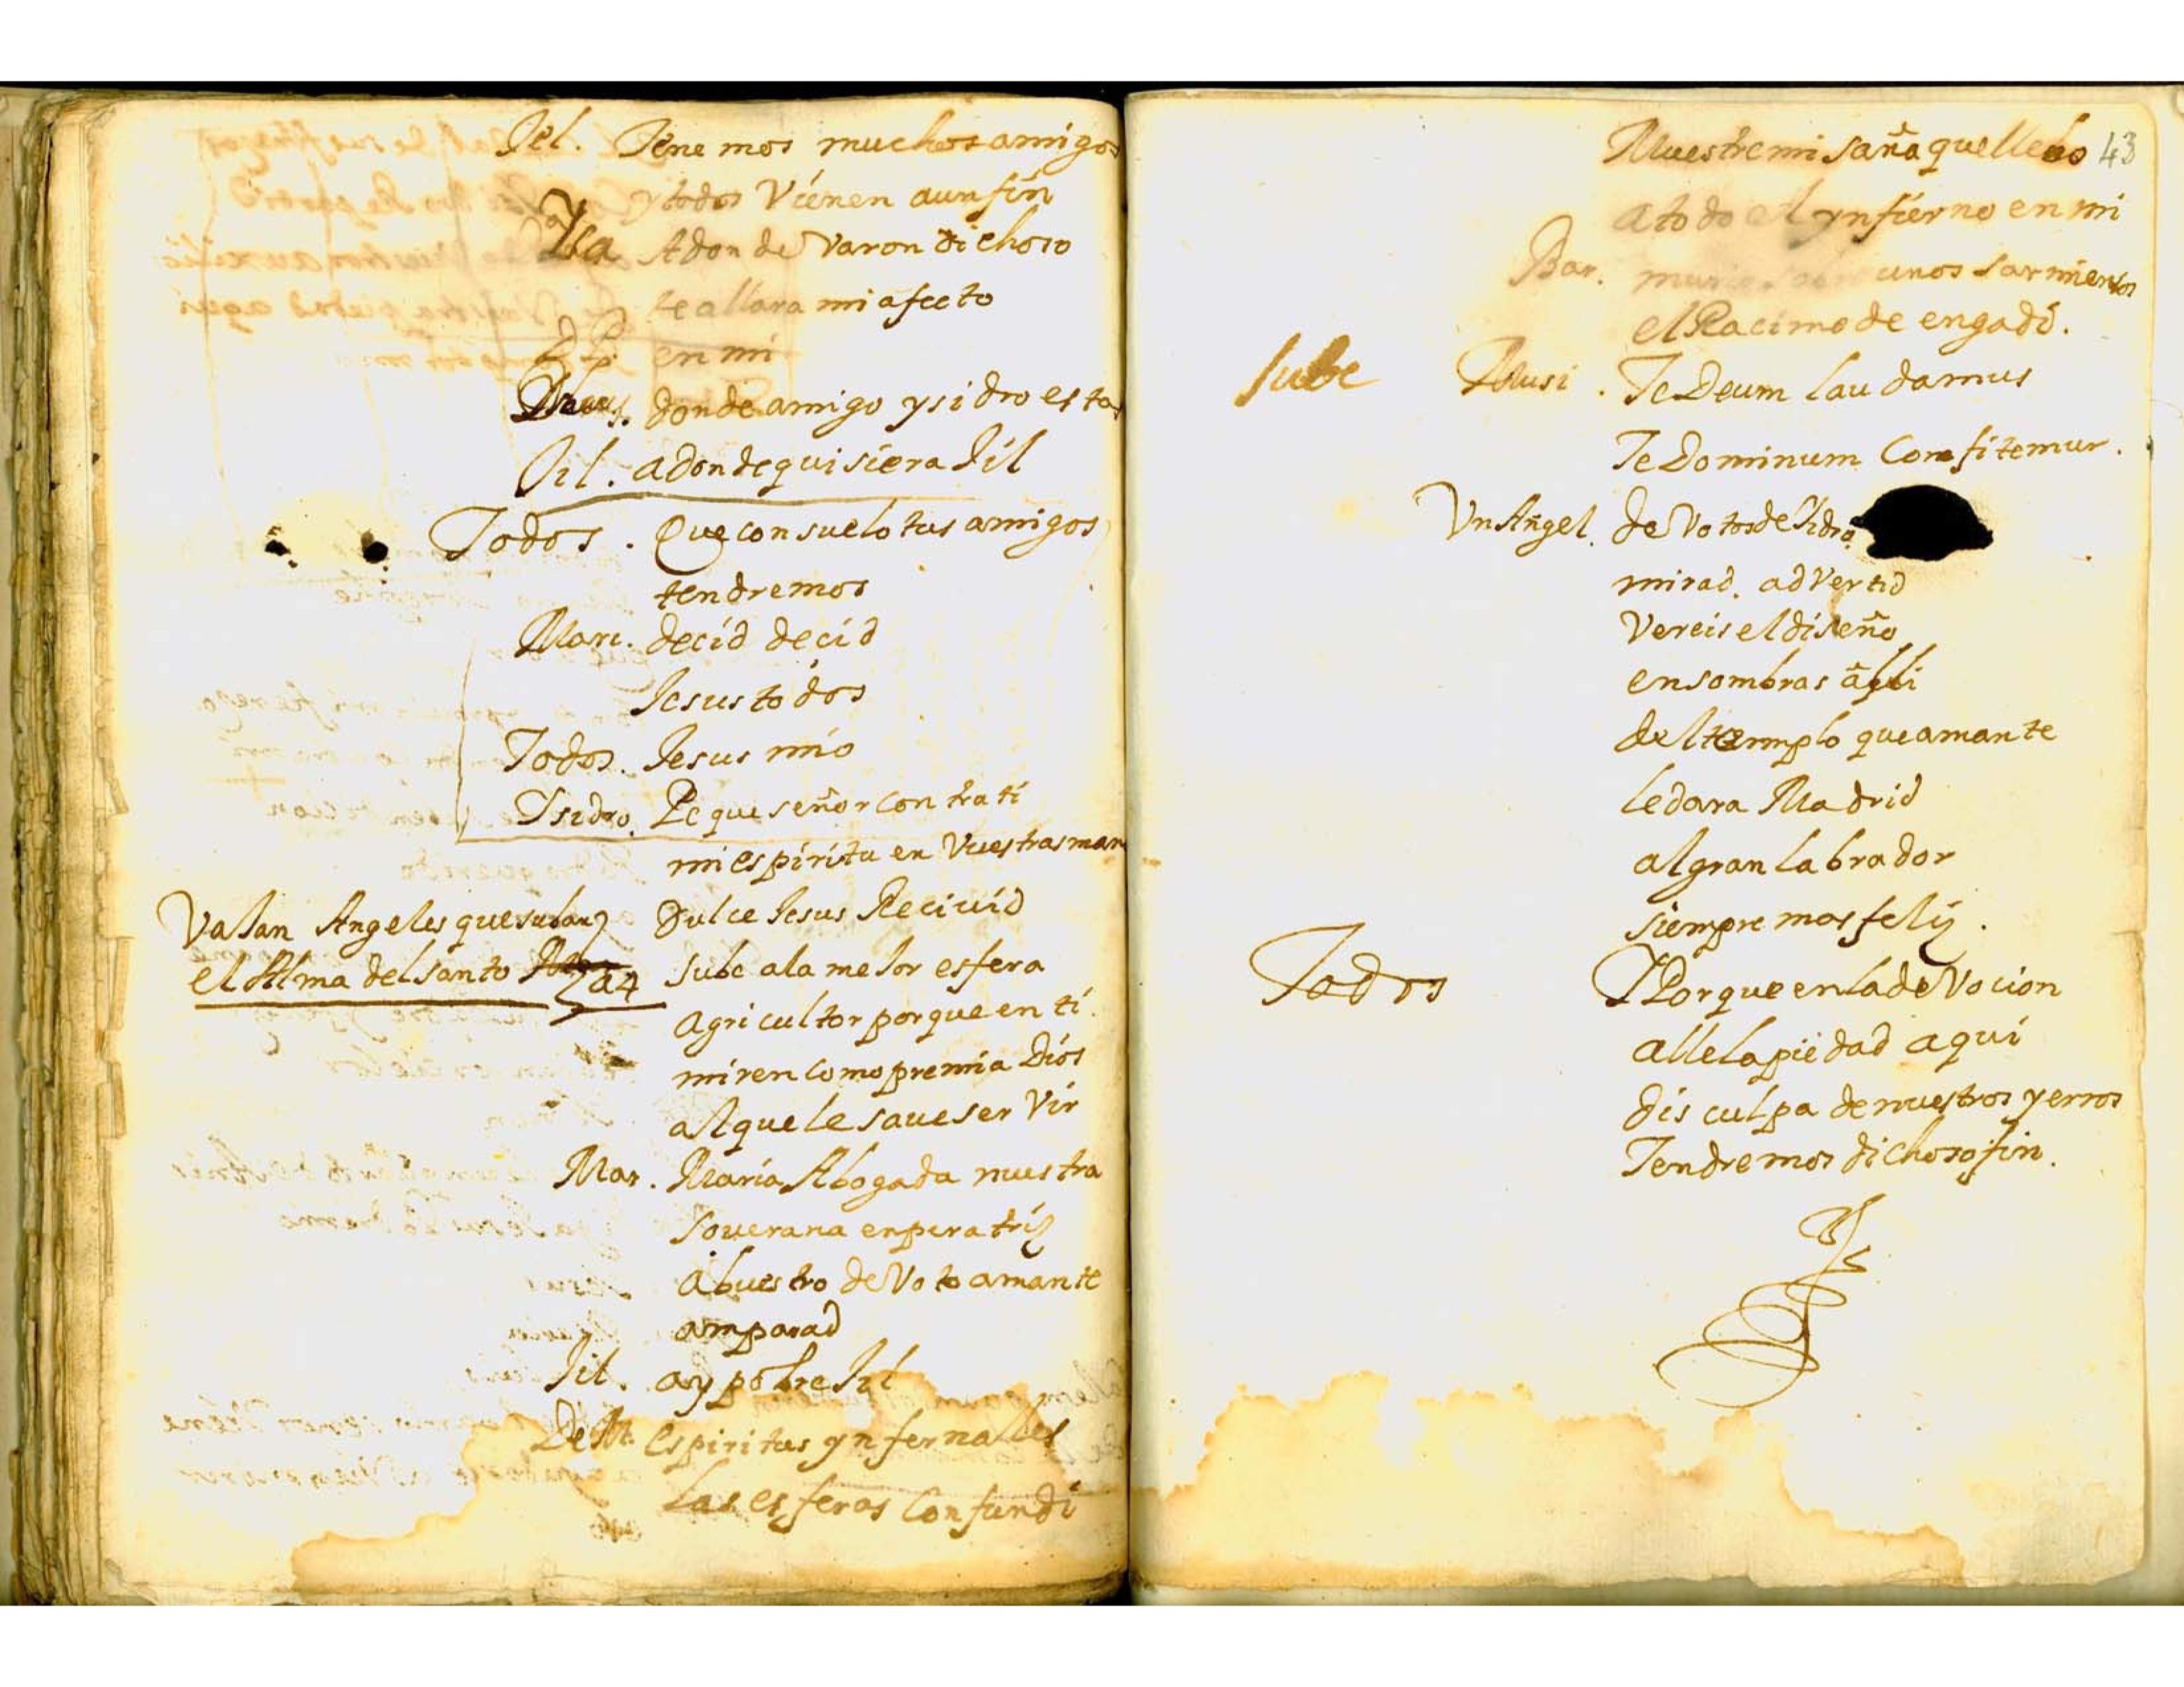 Jel. Tenemos muchos amigos
y todos Vienen aun fin
Yua Adonde Varon dichoso
te allara mi afecto
en mi
donde amigo ysidro estas
Jil. adonde quisiera Jil
Todos. Que consuelo tus amigos
tendremos
Mari. decid decid
Jesus todos
Todos. Jesus mio
Isidro. Pe que señor contra ti
mi espiritu en Vuestras man
Vajan Angeles que suban
el Alma del santo
a 4
Dulce Jesus Recivid
sube ala mejor esfera
agricultor porque en ti.
miren como premia Dios
al que le save ser Vir
Mar. Maria Abogada nuestra
soverana enperatriz
a buestro deVoto amante
amparad
Jil. ay pobre Jil
Dem. espiritus ynfernales
las esferas confundi
43
Muestre mi saña que llebo
a todo el ynfierno en mi
Bar. unos sarmientos
el Racimo de engadi.
sube
Musi. Te Deum laudamus
Te Dominum Confitemur.
Vn Angel. deVotos de Isidro
mirad. adVertid
Vereis el diseño
en sombras alli
del templo que amante
le dara Madrid
al gran labrador
siempre mas feliz.
Todos
Y Porque en la deVocion
alle la piedad aqui
disculpa de nuestros yerros
Tendremos dichoso fin.